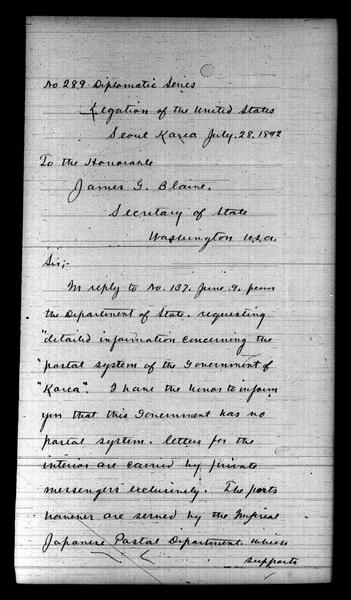 No 289 Diplomatic Series
Legation of the United States
Seoul Korea July. 28. 1892
To the Honorable
James G. Blaine.
Secretary of State
Washington U.S.A.
Sir;-
In reply to No. 137. June. 9. from
the Department of State. requesting
"detailed information concerning the
"postal system of the Government of
"Korea". I have the honor to inform
you that this Government has no
postal system. letters for the
interior are carried by private
messengers exclusively. The ports
however are served by the Imperial
Japanese Postal Department. which
supports